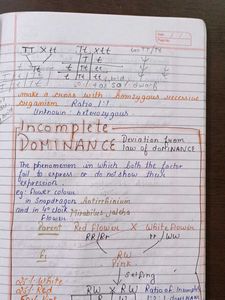 TT X tt    Tt X tt
make a cross with homozygous recessive
organism. Ratio 1:1
Unknown: heterozygous
Incomplete
DOMINANCE Deviation from
law of dominance
The phenomenon in which both the factor
fail to express or do not show their
expression.
eg: flower colour
in Snapdragon Antirrhinium
and in 4 o'clock Mirabilus jalaba
Flower
Parent Red Flower X White Flower
RR/Rr rr/WW
F1 RW
Pink
Selfing
White
Red RW X RW Ratio of Incomplete